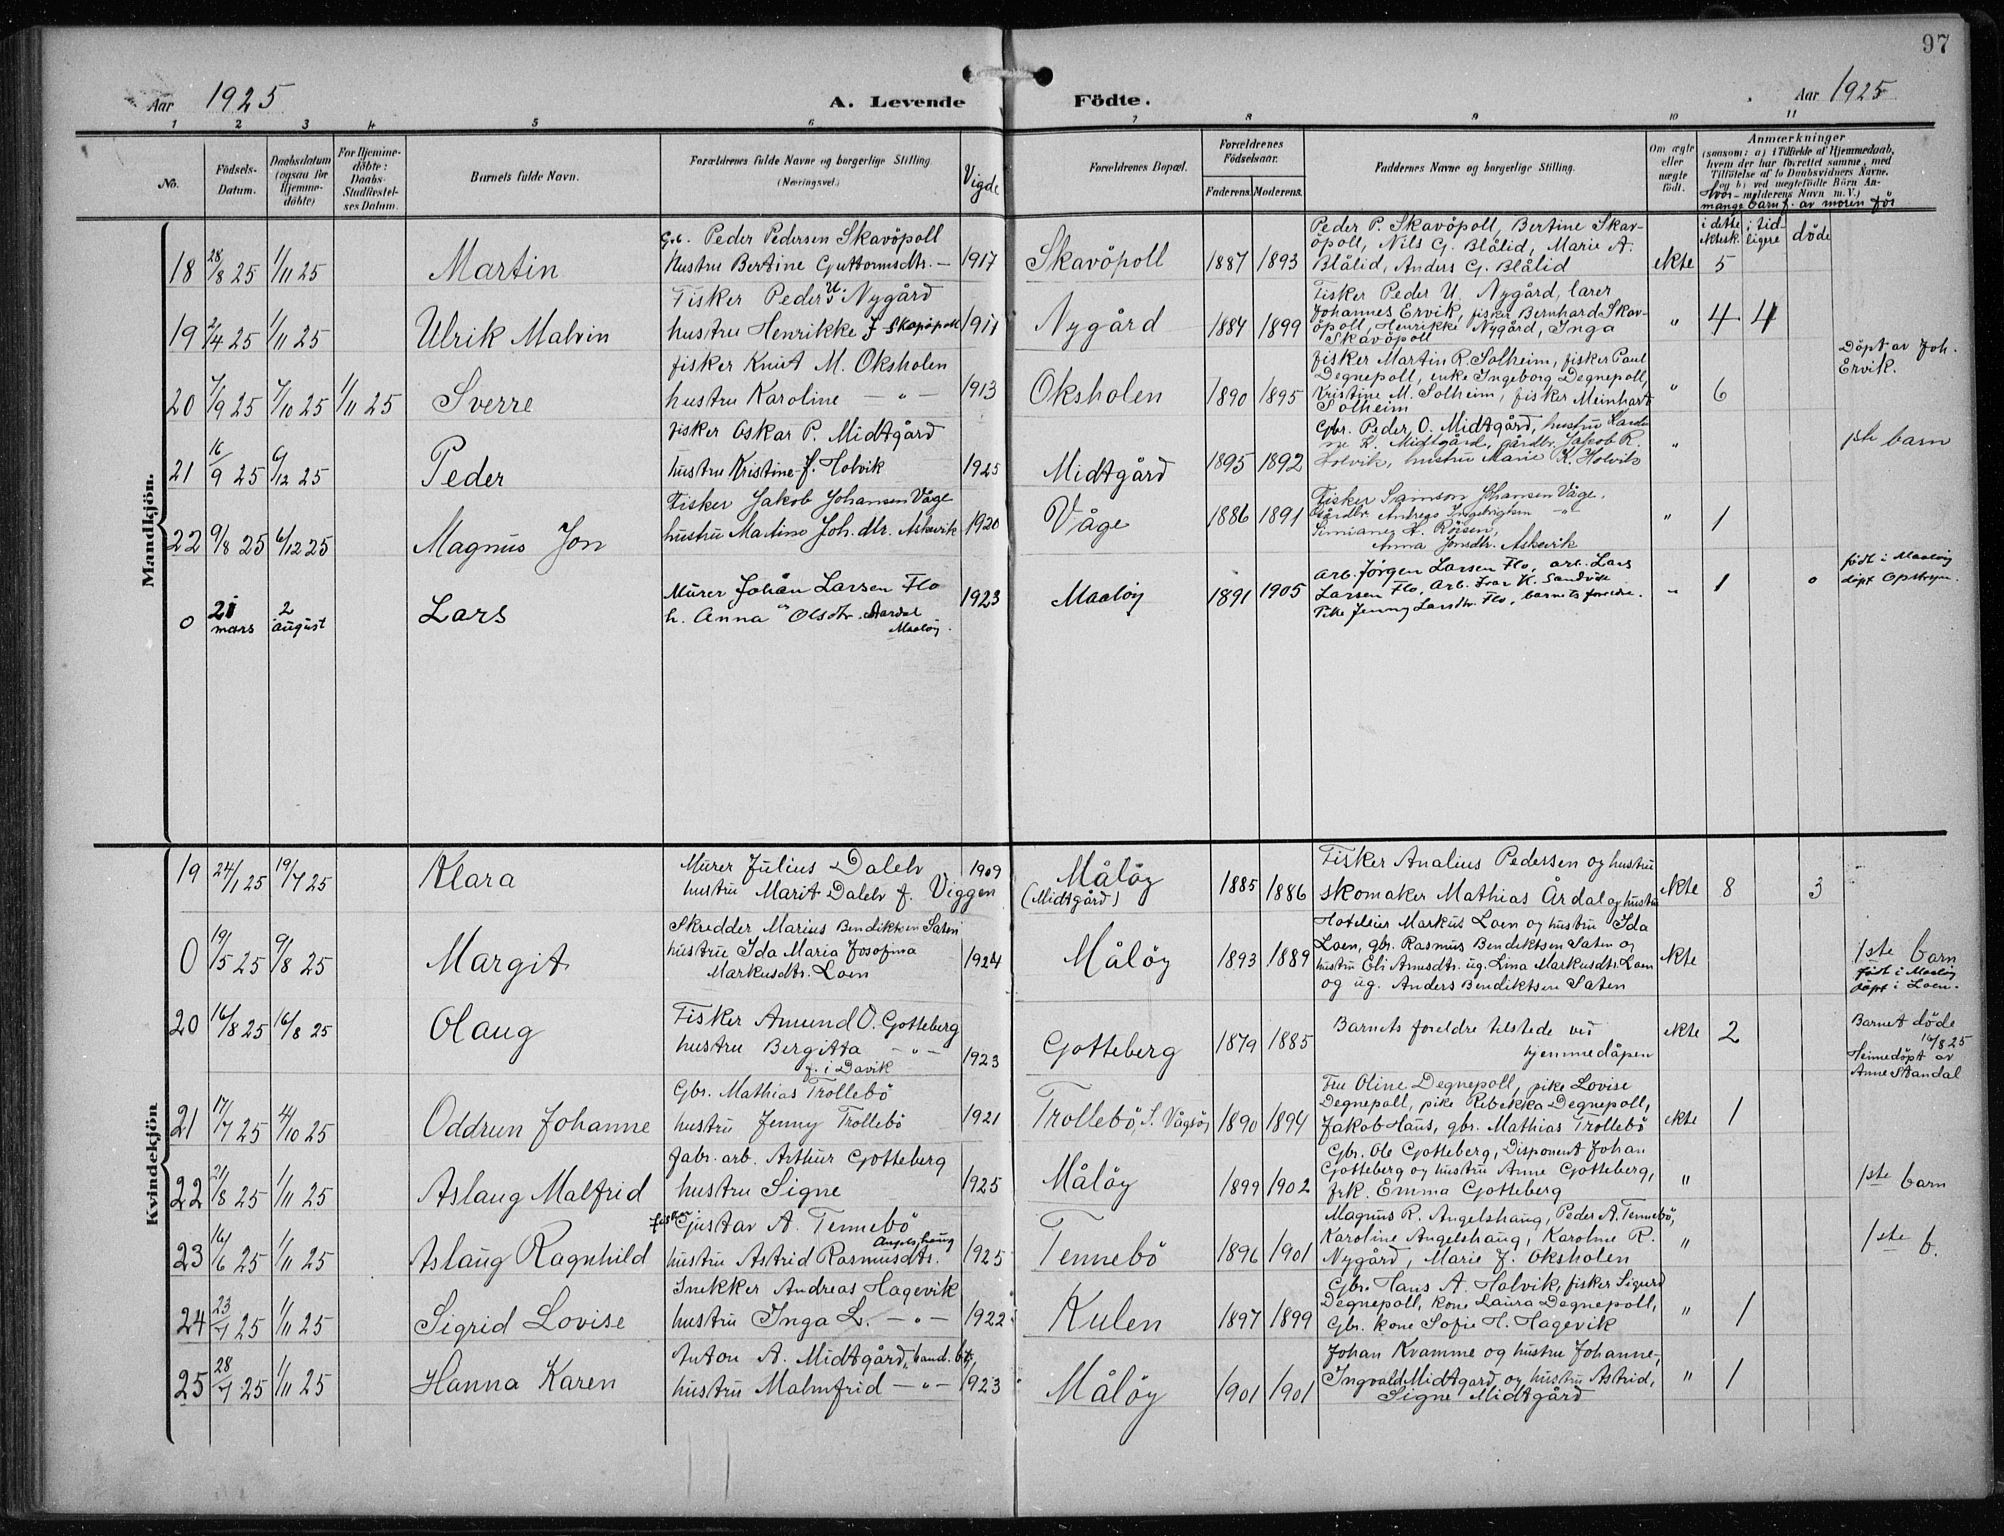 97
Aar 1925 A. Levende Födte. Aar 1925
1 2 3 4 5 6 7 8 9 10 11
No. Födsels-Datum. Daabsdatum (ogsaa for Hjemme-döbte) For Hjemme-döbte: Daabs-Stadfæstel-ses Datum. Barnets fulde Navn. Forældrenes fulde Navne og borgerlige Stilling. (Næringsvei.) Vigde Forældrenes Bopæl. Forældrenes Födselsaar. Faderens. Moderens. Faddernes Navne og borgerlige Stilling. Om ægte eller uægte födt. Anmærkninger
(saasom: a) i Tilfælde af Hjemmedaab, hvem der har forrettet samme, med Tilföielse af to Daabsvidners Navne. og b) ved uægtefödte Börn An-melderens Navn m. V.)
Hvor mange barn f. av moren för
i dette ektesk. i tid-ligere döde
Mandkjön.
18 28/8 25 1/11 25 Martin
Gb. Peder Pedersen Skavöpoll
hustru Bertine Guttormsdtr. — 1917
Skavöpoll 1887 1893
Peder P. Skavöpoll, Bertine Skav-
öpoll, Nils G. Blålid, Marie A.
Blålid, Anders G. Blålid
ekte 5
19 2/4 25 1/11 25 Ulrik Malvin
Fisker Peder U. Nygård
hustru Henrikke f. Skavöpoll 1911
Nygård 1887 1899
Fisker Peder U. Nygård, lærer
Johannes Ervik, fisker Bernhard Skav-
öpoll, Henrikke Nygård, Inga
Skavöpoll
" 4 4
20 7/9 25 7/10 25 1/11 25 Sverre
fisker Knut M. Oksholen
hustru Karoline — " — 1913
Oksholen 1890 1895
fisker Martin R. Solheim, fisker Paul
Degnepoll, enke Ingeborg Degnepoll,
Kristine M. Solheim, fisker Meinhart
Solheim
" 6
Döpt av Joh.
Ervik.
21 16/9 25 6/12 25 Peder
fisker Oskar P. Midtgård
hustru Kristine J. Holvik 1925
Midtgård 1895 1892
Gbr. Peder O. Midtgård, hustru
L. Midtgård, gårdbr. Jakob R.
Holvik, hustru Marie K. Holvik
" 1ste barn
22 9/8 25 6/12 25 Magnus Jon
Fisker Jakob Johansen Våge
hustru Martine Joh.dtr. Askevik 1920
Våge 1886 1891
Fisker Samson Johansen Våge.
Gårdbr. Andreas Ingebrigtsen — " —
Röisen,
Anna Jonsdtr. Askevik
" 1
0 21 mars 2 august Lars
Murer Johan Larsen Flo
h. Anna Olsdtr. Aardal
Maalöy. 1923
Maalöy 1891 1905
Arb. Jörgen Larsen Flo, arb. Lars
Larsen Flo, Arb. Ivar H. Sandvik
Pike Jenny Larsdtr. Flo, barnets foreldre.
" 1 0
födt i Maalöy
döpt Opstryn.
Kvindekjön
19 24/1 25 19/7 25 Klara
Murer Julius Dalelv
hustru Marit Dalelv f. Viggen 1909
Målöy
(Midtgård) 1885 1886
Fisker Analius Pedersen og hustru
skomaker Mathias Årdal og hustru
ekte 8 3
0 19/5 25 9/8 25 Margit
Skredder Marius Bendiktsen Sæten
hustru Ida Maria Josofina
Markusdtr. Loen 1924
Målöy 1893 1889
Hoteleier Markus Loen og hustru Ida
Loen, gbr. Rasmus Bendiktsen Sæten og
hustru Eli Arnesdtr. ug. Lina Markusdtr. Loen
og ug. Anders Bendiktsen Sæten
ekte 1ste barn
Födt i Maalöy
döpt i Loen.
20 16/8 25 16/8 25 Olaug
Fisker Amund O. Gotteberg
hustru Bergitta — " —
f. i Davik 1923
Gotteberg 1879 1885
Barnets foreldre tilstede ved
hjemmedåpen
ekte 2
Barnet döde
16/8 25
Heimedöpt av
Anne Standal
21 17/7 25 4/10 25 Oddrun Johanne
Gbr. Mathias Trollebö
hustru Jenny Trollebö 1921
Trollebö, S. Vågsöy 1890 1894
Fru Oline Degnepoll, pike Lovise
Degnepoll, pike Rebekka Degnepoll,
Jakob Haus, gbr. Mathias Trollebö
ekte 1
22 21/8 25 1/11 25 Aslaug Malfrid
fabr. arb. Arthur Gotteberg
hustru Signe 1925
Målöy 1899 1902
Gbr. Ole Gotteberg, Disponent Johan
Gotteberg og hustru Anne Gotteberg,
frk. Emma Gotteberg
" 1ste barn
23 16/6 25 1/11 25 Aslaug Ragnhild
fisker Gustav A. Tennebö
hustru Astrid Rasmusdtr. Angelshaug 1925
Tennebö 1896 1901
Magnus R. Angelshaug, Peder A. Tennebö,
Karoline Angelshaug, Karoline R.
Nygård, Marie J. Oksholen
" 1ste b.
24 23/7 25 1/11 25 Sigrid Lovise
Snekker Andreas Hagevik
hustru Inga L. — " — 1922
Kulen 1897 1899
Gbr. Hans A. Holvik, fisker Sigurd
Degnepoll, kone Laura Degnepoll,
Gbr. kone Sofie H. Hagevik
" 1
25 28/7 25 1/11 25 Hanna Karen
Anton A. Midtgård, hand. bet.,
hustru Malmfrid — " — 1923
Målöy 1901 1901
Johan Kvamme og hustru Johanne,
Ingvald Midtgard og hustru Astrid,
Signe Midtgård
" 1